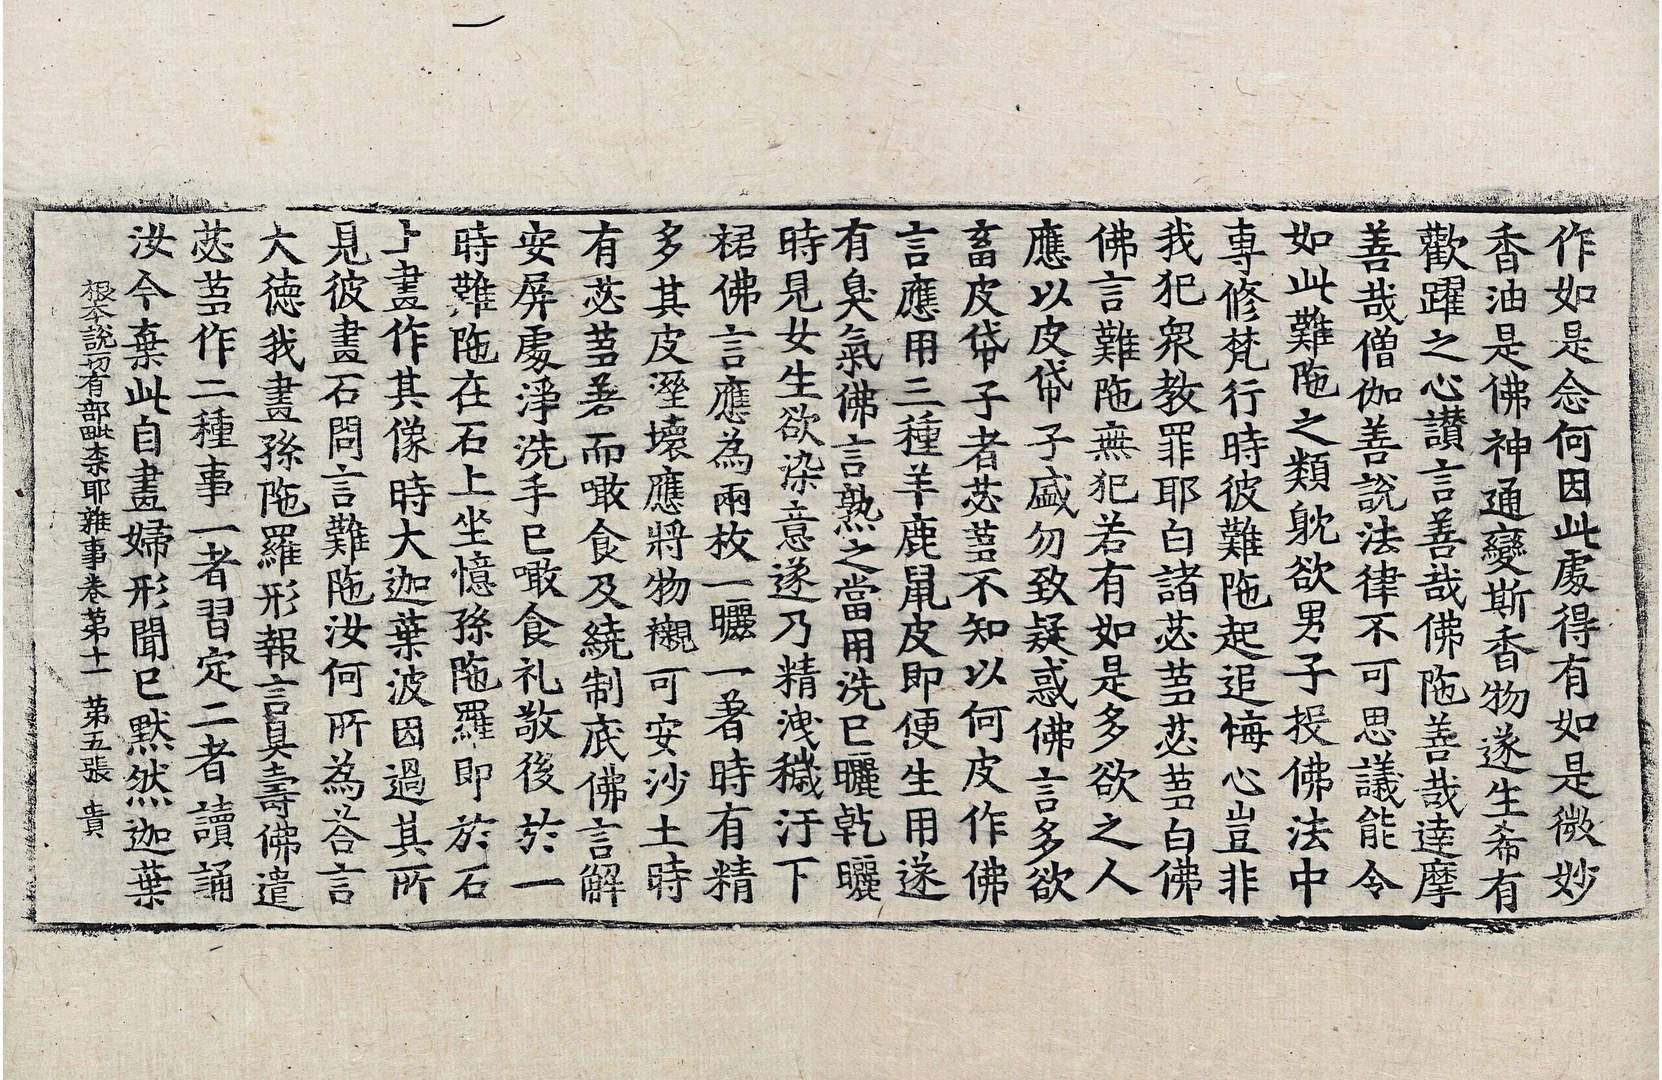 作如是念何因此處得有如是微妙
香油是佛神通變斯香物遂生希有
歡躍之心讃言善哉佛陁善哉達摩
善哉僧伽善說法律不可思議能令
如此難陁之類躭欲男子投佛法中
専修梵行時彼難陁起追悔心豈非
我犯衆教罪耶白諸苾蒭苾蒭白佛
佛言難陁無犯若有如是多欲之人
應以皮帒子盛勿致疑惑佛言多欲
畜皮帒子者苾蒭不知以何皮作佛
言應用三種羊鹿鼠皮即便生用遂
有臭氣佛言熟之當用洗已曬乾曬
時見女生欲染意遂乃精洩穢汙下
裙佛言應為兩枚一曬一著時有精
多其皮溼壞應將物襯可安沙土時
有苾蒭著而噉食及繞制底佛言解
安屏處淨洗手已噉食礼敬後於一
時難陁在石上坐憶孫陁羅即於石
上畫作其像時大迦葉波因過其所
見彼畫石問言難陁汝何所為答言
大德我畫孫陁羅形報言具壽佛遣
苾蒭作二種事一者習定二者讀誦
汝今棄此自畫婦形聞已默然迦葉
根本說一切有部毗奈耶雜事卷第十一 第五張 貴